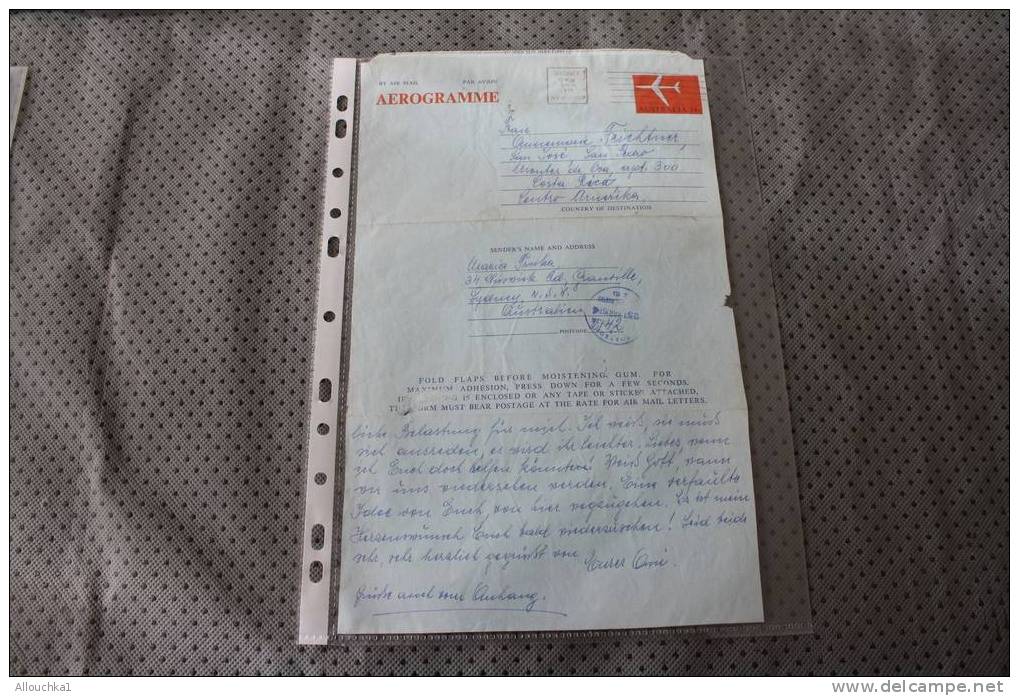 BY AIR MAIL PAR AVION
AEROGRAMME
AUSTRALIA
Frau
Annemarie Feichtner
San José, San Pedro
Montes de Oca, apt. 300
Costa Rica
Centro Amerika
COUNTRY OF DESTINATION
SENDER'S NAME AND ADDRESS
Maria
34 Rd, Granville,
Sydney, N.S.W.
Australien
POSTCODE 2142
FOLD FLAPS BEFORE MOISTENING GUM. FOR
MAXIMUM ADHESION, PRESS DOWN FOR A FEW SECONDS.
IF IS ENCLOSED OR ANY TAPE OR STICKER ATTACHED,
THE FORM MUST BEAR POSTAGE AT THE RATE FOR AIR MAIL LETTERS.
liche Belastung für mich. Ich weiß, sie muß
sich ausreden, es wird ihr leichter. Lieber wenn
ich Euch doch helfen könnten! Weiß Gott, wann
wir uns wiedersehen werden. Eine verfaulte
Idee von Euch von hier wegzugehen. Es ist mein
Herzenswunsch Euch bald wiederzusehen! Seid beide
sehr, sehr herzlich gegrüßt von
Eurer Omi.
Grüße auch vom Anhang.
Allouchka1
delcampe.net